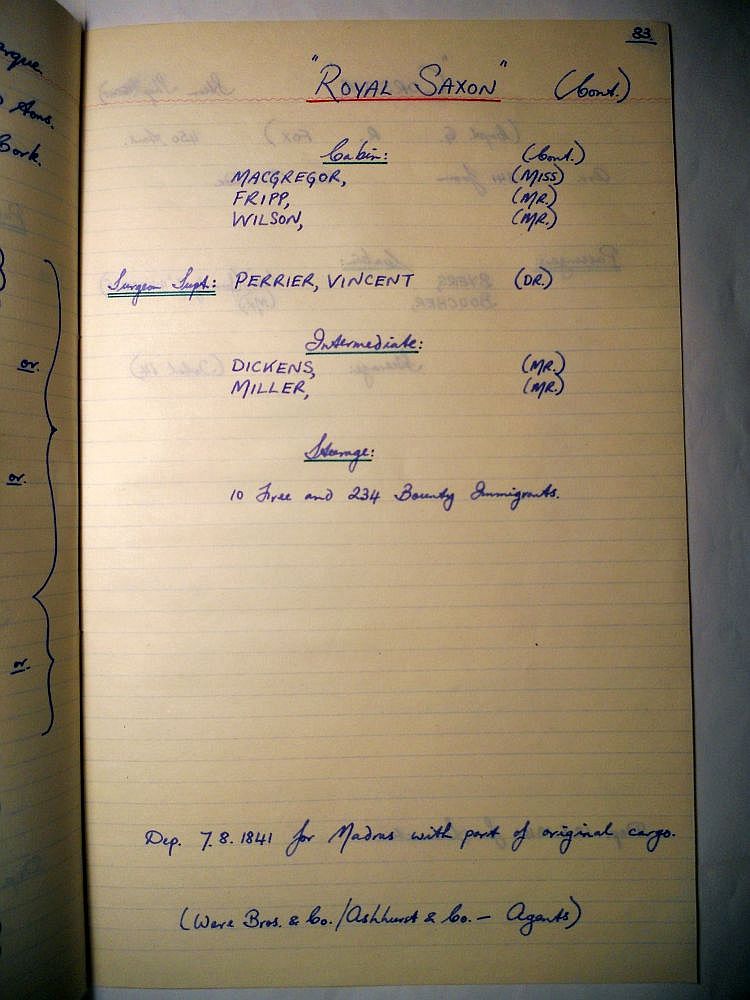 arque
Sons.
Cork.
or.
or.
or.
83.
"ROYAL SAXON" (Cont.)
Cabin: (Cont.)
MACGREGOR, (MISS)
FRIPP, (MR.)
WILSON, (MR.)
Surgeon Supt.: PERRIER, VINCENT (DR.)
Intermediate:
DICKENS, (MR.)
MILLER, (MR.)
Steerage:
10 Free and 234 Bounty Immigrants.
Dep. 7.8.1841 for Madras with part of original cargo.
(Were Bros. & Co./Ashhurst & Co. — Agents)